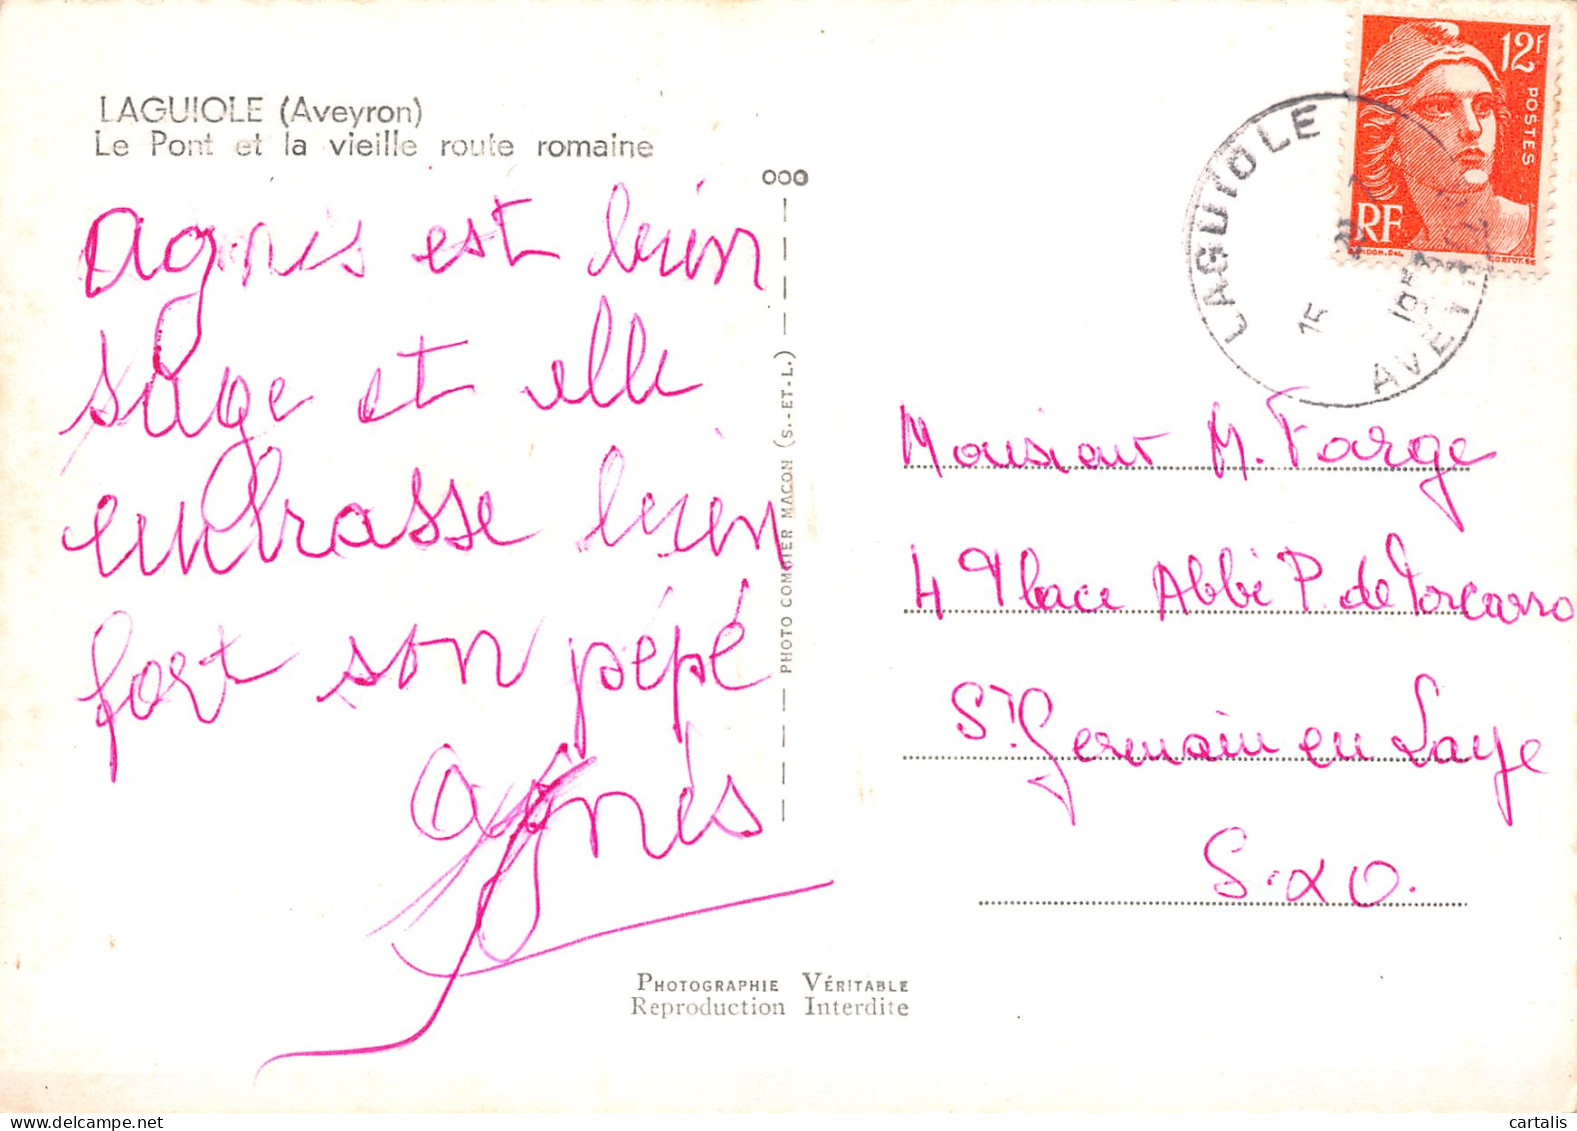 LAGUIOLE (Aveyron)
Le Pont et la vieille route romaine
agnès est bien
sage et elle
embrasse bien
fort son pépé
agnès
ooo
PHOTO COMBIER MACON (S.-ET-L.)
12F
POSTES
RF
LAGUIOLE
15
AVEYRON
Monsieur M. Farge
4 Place Abbé P. de Porcaro
St Germain en Laye
S.&O.
PHOTOGRAPHIE VÉRITABLE
Reproduction Interdite
www.delcampe.net
cartalis